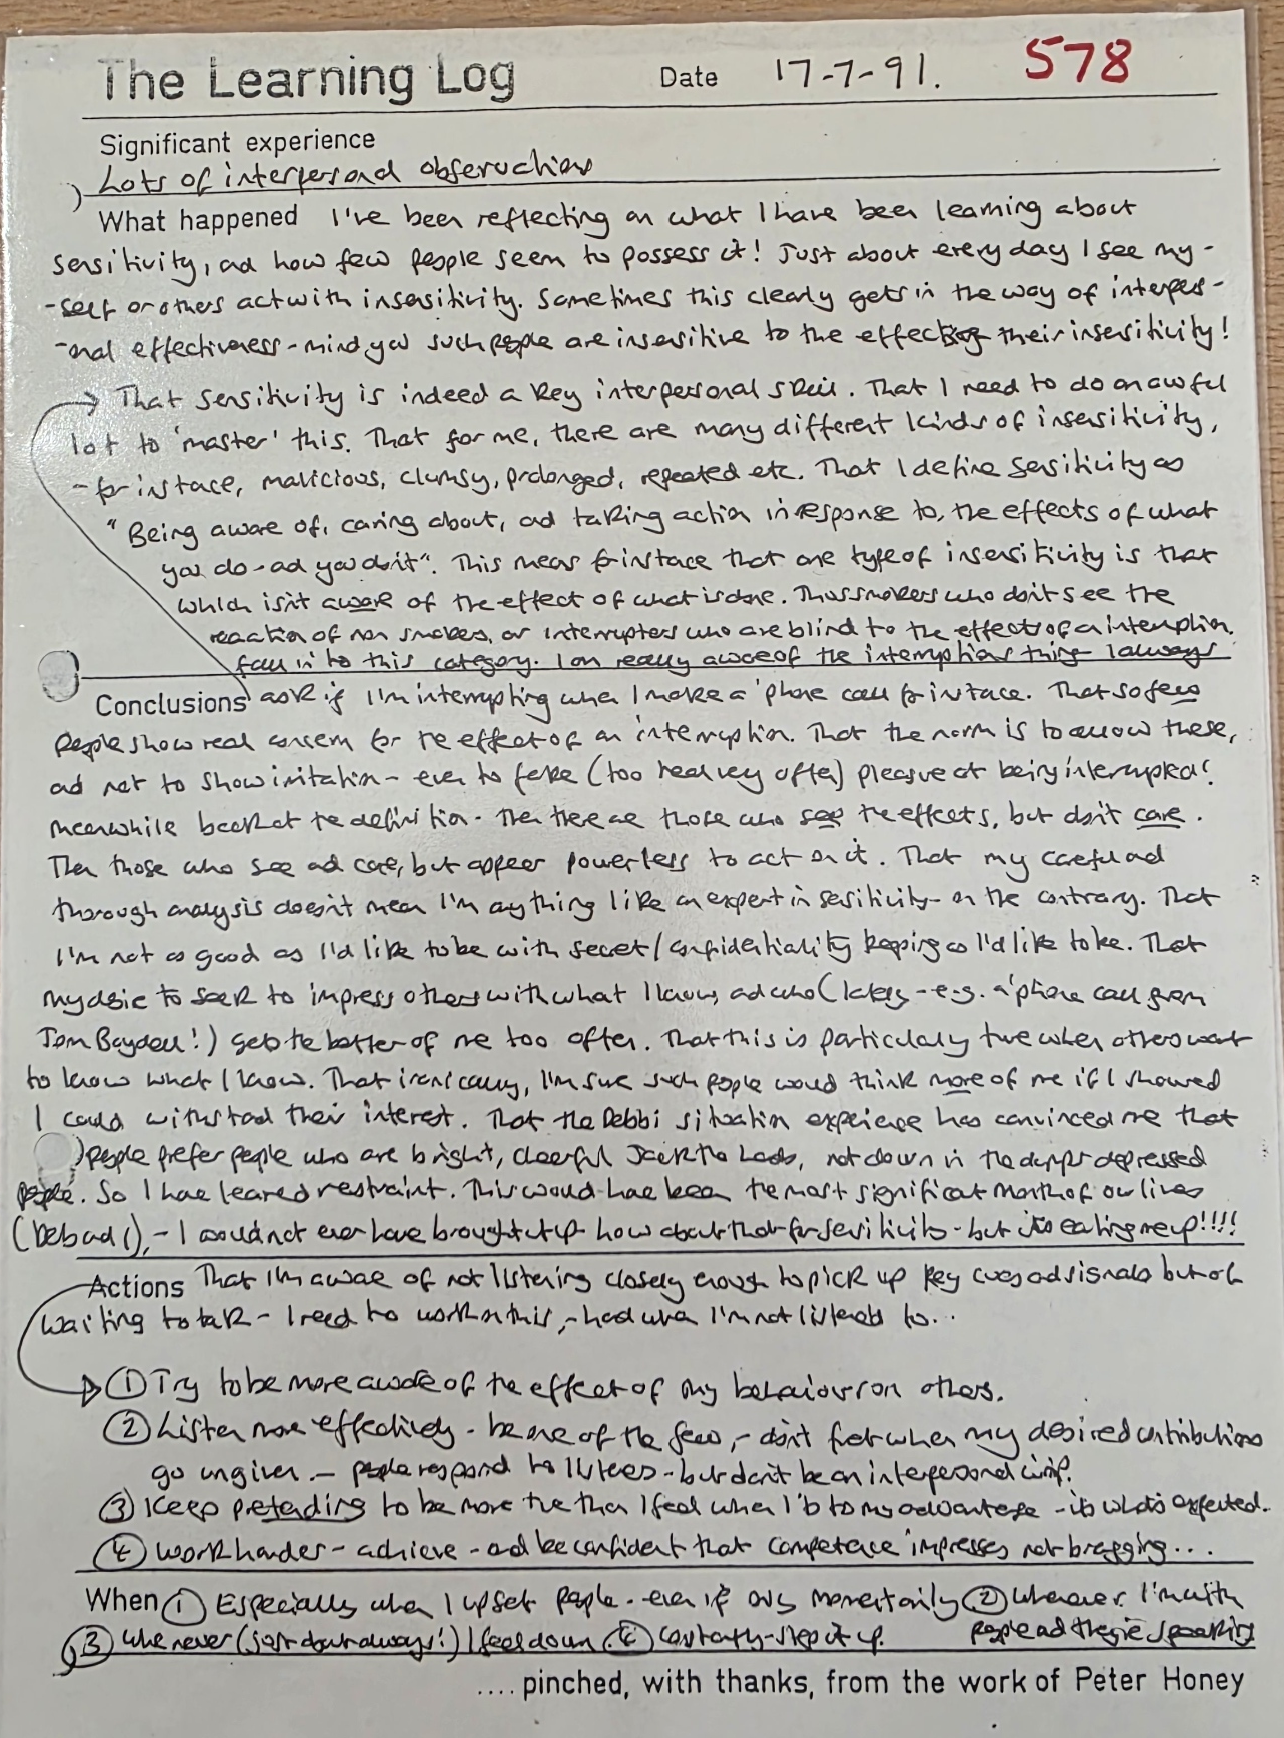 The Learning Log Date 17-7-91. 578
Significant experience
Lots of interpersonal observations
What happened I've been reflecting on what I have been learning about
sensitivity, and how few people seem to possess it! Just about every day I see my-
-self or others act with insensitivity. Sometimes this clearly gets in the way of interpers-
-onal effectiveness - mind you such people are insensitive to the effect of their insensitivity!
→ That sensitivity is indeed a key interpersonal skill. That I need to do an awful
lot to 'master' this. That for me, there are many different kinds of insensitivity,
- for instance, malicious, clumsy, prolonged, repeated etc. That I define sensitivity as
"Being aware of, caring about, and taking action in response to, the effects of what
you do - and you don't". This means for instance that one type of insensitivity is that
which isn't aware of the effect of what is done. Thus smokers who don't see the
reaction of non smokers, or interrupters who are blind to the effects of an interruption,
fall in to this category. I am really aware of the interruptions thing - I always
Conclusions ask if I'm interrupting when I make a 'phone call for instance. That so few
people show real concern for the effect of an interruption. That the norm is to allow these,
and not to show irritation - even to fake (too readily often) pleasure at being interrupted!
Meanwhile back at the definition - then there are those who see the effects, but don't care.
Then those who see and care, but appear powerless to act on it. That my careful and
thorough analysis doesn't mean I'm anything like an expert in sensitivity - on the contrary. That
I'm not as good as I'd like to be with secret/confidentiality keeping as I'd like to be. That
my desire to seek to impress others with what I know, and who (lately - e.g. a 'phone call from
Tom Boydell!) gets the better of me too often. That this is particularly true when others want
to know what I know. That ironically, I'm sure such people would think more of me if I showed
I could withstand their interest. That the Debbi situation experience has convinced me that
people prefer people who are bright, cheerful Jack the Lads, not down in the dumps depressed
people. So I have learned restraint. This would have been the most significant month of our lives
(Deb and I), - I would not ever have brought it up - how about that for sensitivity - but it's eating me up!!!!
Actions That I'm aware of not listening closely enough to pick up key cues and signals but of
waiting to talk - I need to work on this, - hard when I'm not listened to...
① Try to be more aware of the effect of my behaviour on others.
② Listen more effectively - be one of the few, - don't fret when my desired contributions
go ungiven. - people respond to listeners - but don't be an interpersonal wimp.
③ Keep pretending to be more than I feel when it's to my advantage - it's what's expected.
④ Work harder - achieve - and be confident that competence impresses not bragging...
When ① Especially when I upset people - even if only momentarily ② Whenever I'm with
people and they're speaking
③ Whenever (just about always!) I feel down. ④ Constantly - step it up.
.... pinched, with thanks, from the work of Peter Honey